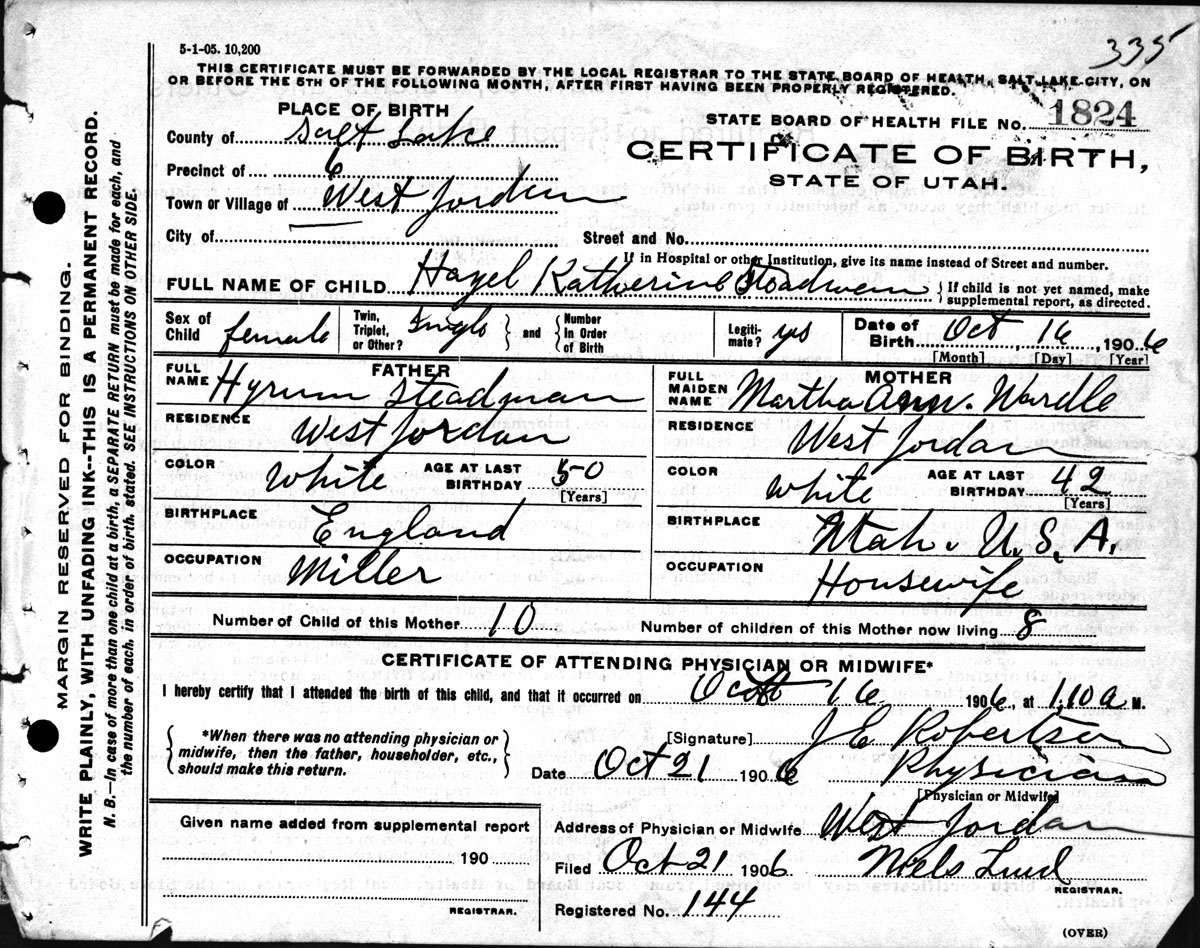 5-1-05. 10,200
335
THIS CERTIFICATE MUST BE FORWARDED BY THE LOCAL REGISTRAR TO THE STATE BOARD OF HEALTH, SALT LAKE CITY, ON
OR BEFORE THE 5TH OF THE FOLLOWING MONTH, AFTER FIRST HAVING BEEN PROPERLY REGISTERED.
PLACE OF BIRTH
County of Salt Lake
Precinct of
Town or Village of West Jordan
City of
STATE BOARD OF HEALTH FILE No. 1824
CERTIFICATE OF BIRTH,
STATE OF UTAH.
Street and No.
If in Hospital or other Institution, give its name instead of Street and number.
FULL NAME OF CHILD Hazel Katherine Steadman { If child is not yet named, make supplemental report, as directed.
Sex of Child female Twin, Triplet, or Other? Single } and { Number In Order of Birth Legiti- mate? yes Date of Birth Oct 16 1906
[Month] [Day] [Year]
FATHER
FULL NAME Hyrum Steadman
RESIDENCE West Jordan
COLOR White AGE AT LAST BIRTHDAY 50
[Years]
BIRTHPLACE England
OCCUPATION Miller
MOTHER
FULL MAIDEN NAME Martha Ann Wardle
RESIDENCE West Jordan
COLOR White AGE AT LAST BIRTHDAY 42
[Years]
BIRTHPLACE Utah. U. S. A.
OCCUPATION Housewife
Number of Child of this Mother 10 Number of children of this Mother now living 8
CERTIFICATE OF ATTENDING PHYSICIAN OR MIDWIFE*
I hereby certify that I attended the birth of this child, and that it occurred on Oct 16 1906, at 1.10 a M.
{ *When there was no attending physician or midwife, then the father, householder, etc., should make this return. }
[Signature] J E Robertson
Date Oct 21 1906 Physician
[Physician or Midwife]
Given name added from supplemental report
190
REGISTRAR.
Address of Physician or Midwife West Jordan
Filed Oct 21 1906 Niels Lind
REGISTRAR.
Registered No. 144
(OVER)
MARGIN RESERVED FOR BINDING.
WRITE PLAINLY, WITH UNFADING INK--THIS IS A PERMANENT RECORD.
N. B.—In case of more than one child at a birth, a SEPARATE RETURN must be made for each, and
the number of each, in order of birth, stated. SEE INSTRUCTIONS ON OTHER SIDE.